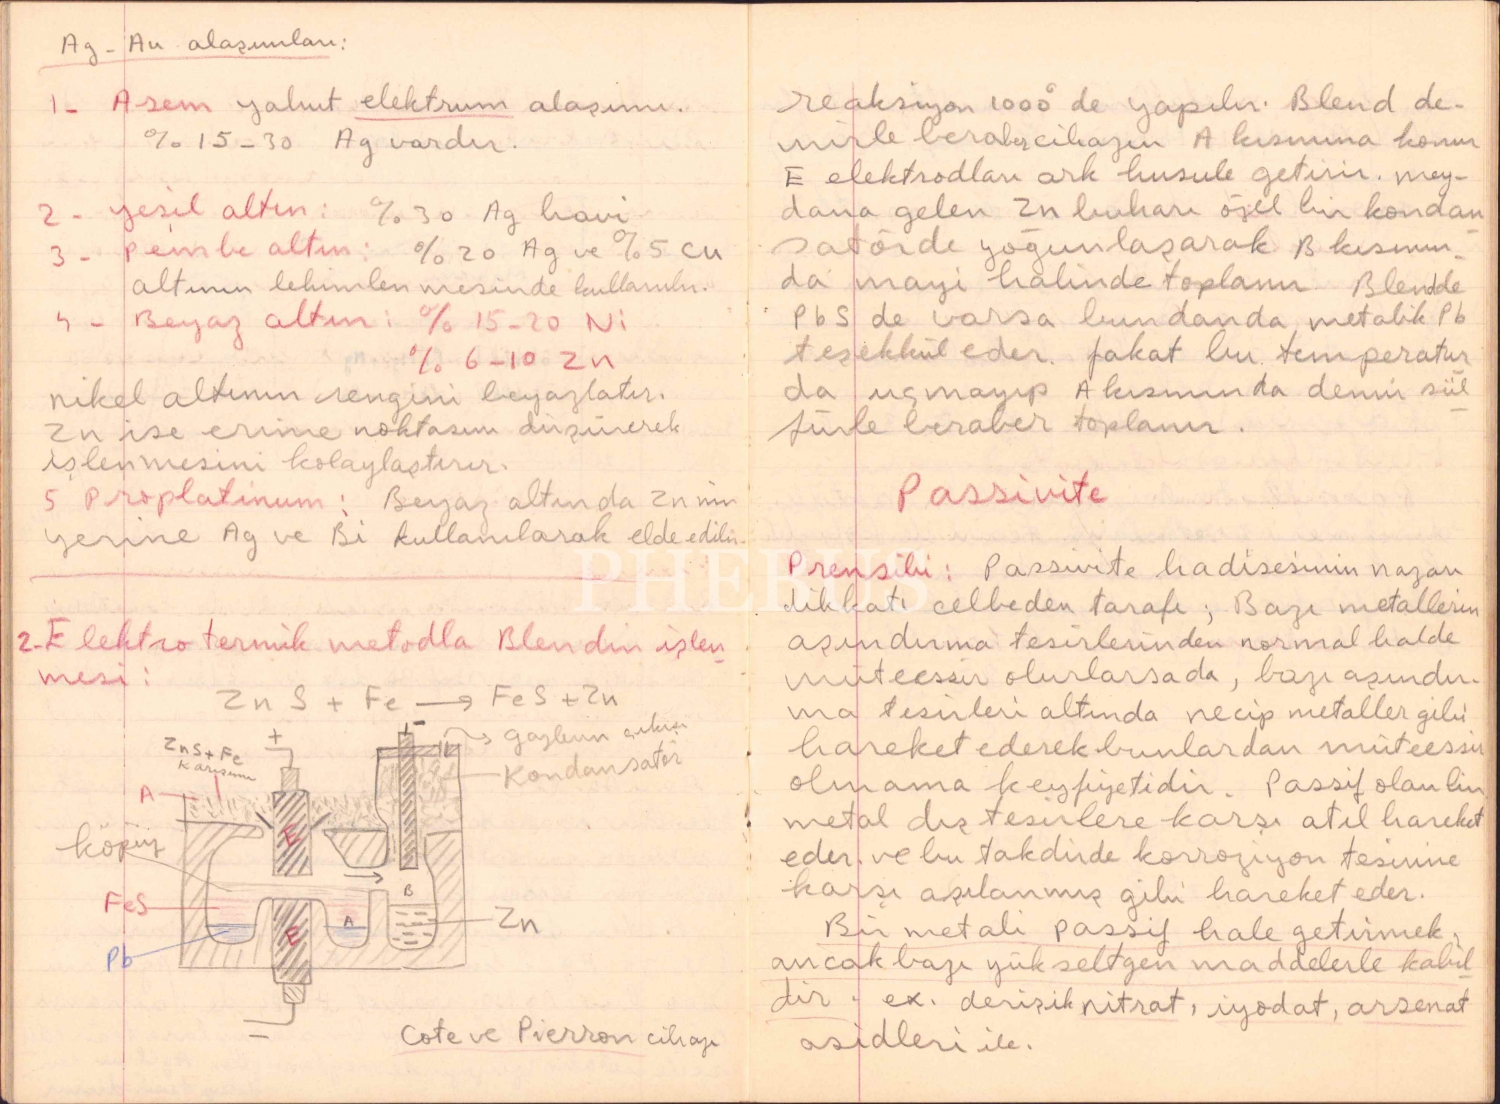 Ag-Au alaşımları:
1- Asem yahut elektrum alaşımı.
% 15-30 Ag vardır.
2- yeşil altın: % 30 Ag havi
3- pembe altın: % 20 Ag ve % 5 Cu
altının lehimlenmesinde kullanılır.
4- Beyaz altın: % 15-20 Ni
% 6-10 Zn
nikel altının rengini beyazlatır.
Zn ise erime noktasını düşürerek
işlenmesini kolaylaştırır.
5 Proplatinum: Beyaz altında Zn nin
yerine Ag ve Bi kullanılarak elde edilir.
2-Elektro termik metodla Blendin işlen
mesi:
ZnS + Fe → FeS + Zn
ZnS+Fe
karışımı
+
-
gazların çıkışı
Kondansatör
A
köpük
E
B
FeS
A
E
Zn
Pb
Cote ve Pierron cihazı
reaksiyon 1000° de yapılır. Blend de-
mirle beraber cihazın A kısmına konur
E elektrodları ark husule getirir. mey-
dana gelen Zn buharı özel bir kondan
satörde yoğunlaşarak B kısmın-
da mayi halinde toplanır. Blendde
PbS de varsa bundanda metalik Pb
teşekkül eder. fakat bu temperatur
da uçmayıp A kısmında demir sül
fürle beraber toplanır.
Passivite
Prensibi: Passivite hadisesinin nazarı
dikkatı celbeden tarafı; Bazı metallerin
aşındırma tesirlerinden normal halde
müteessir olurlarsada, bazı aşındır-
ma tesirleri altında necip metaller gibi
hareket ederek bunlardan müteessir
olmama keyfiyetidir. Passif olan bir
metal dış tesirlere karşı atıl hareket
eder. ve bu takdirde korroziyon tesirine
karşı aşılanmış gibi hareket eder.
Bir metali passif hale getirmek,
ancak bazı yükseltgen maddelerle kabil
dir. ex. derişik nitrat, iyodat, arsenat
asidleri ile.
PHEBUS